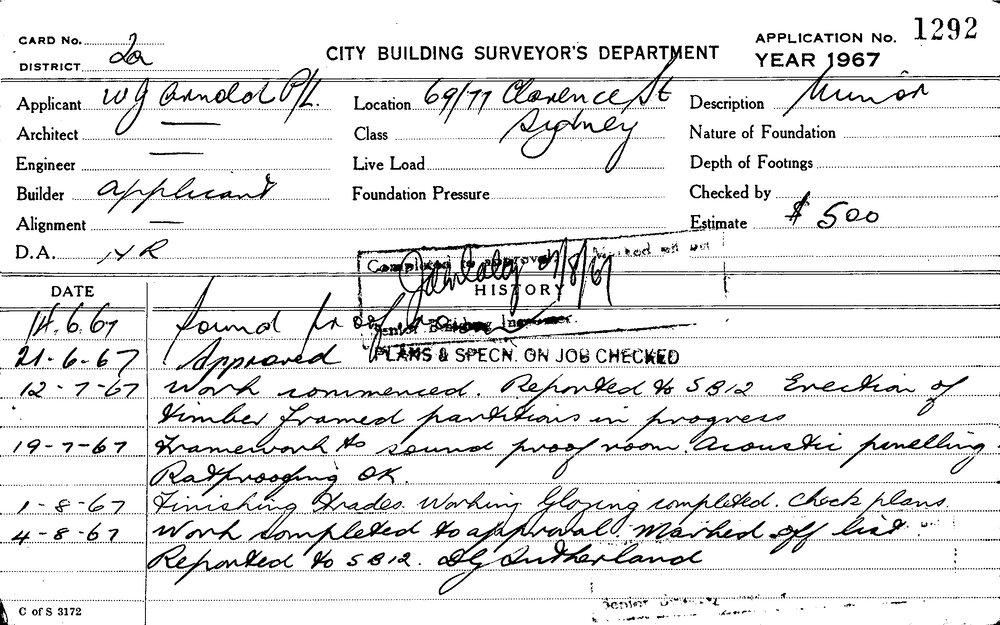 CARD No. 2a
DISTRICT
CITY BUILDING SURVEYOR'S DEPARTMENT
APPLICATION No. 1292
YEAR 1967
Applicant W G Arnold P/L. Location 69/77 Clarence St Description Minor
Sydney
Architect — Class Nature of Foundation
Engineer — Live Load Depth of Footings
Builder Applicant Foundation Pressure Checked by
Alignment — Estimate $500
D.A. NR
Completed to approval Marked off list
DATE HISTORY
14.6.67 Sound proof
Senior Building Inspector.
21-6-67 Approved PLANS & SPECN. ON JOB CHECKED
12-7-67 Work commenced. Reported to SB12 Erection of
timber framed partitions in progress
19-7-67 Framework to sound proof room. Acoustic penelling.
Ratproofing OK.
1-8-67 Finishing trades working Glazing completed. Check plans.
4-8-67 Work completed to approval. Marked off list.
Reported to SB12. DG Sutherland
C of S 3172
Senior